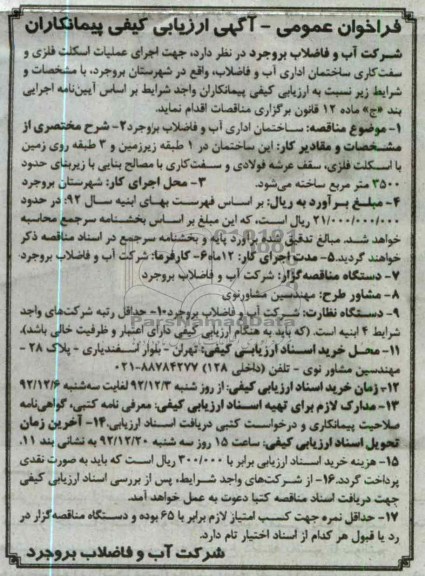 فراخوان عمومی - آگهی ارزیابی کیفی پیمانکاران
شرکت آب و فاضلاب بروجرد در نظر دارد، جهت اجرای عملیات اسکلت فلزی و
سفت‌کاری ساختمان اداری آب و فاضلاب، واقع در شهرستان بروجرد، با مشخصات و
شرایط زیر نسبت به ارزیابی کیفی پیمانکاران واجد شرایط بر اساس آیین‌نامه اجرایی
بند «ج» ماده ۱۲ قانون برگزاری مناقصات اقدام نماید.
۱- موضوع مناقصه: ساختمان اداری آب و فاضلاب بروجرد ۲- شرح مختصری از
مشخصات و مقادیر کار: این ساختمان در ۱ طبقه زیرزمین و ۳ طبقه روی زمین
با اسکلت فلزی، سقف عرشه فولادی و سفت‌کاری با مصالح بنایی با زیربنای حدود
۳۵۰۰ متر مربع ساخته می‌شود. ۳- محل اجرای کار: شهرستان بروجرد
۴- مبلغ برآورد به ریال: بر اساس فهرست بهای ابنیه سال ۹۲: در حدود
۲۱/۰۰۰/۰۰۰/۰۰۰ ریال است، که این مبلغ بر اساس بخشنامه سرجمع محاسبه
خواهد شد. مبالغ تدقیق شده برآورد پایه و بخشنامه سرجمع در اسناد مناقصه ذکر
خواهند گردید. ۵- مدت اجرای کار: ۱۲ماه ۶- کارفرما: شرکت آب و فاضلاب بروجرد
۷- دستگاه مناقصه‌گزار: شرکت آب و فاضلاب بروجرد
۸- مشاور طرح: مهندسین مشاورنوی
۹- دستگاه نظارت: شرکت آب و فاضلاب بروجرد ۱۰- حداقل رتبه شرکت‌های واجد
شرایط ۴ ابنیه است. (که باید به هنگام ارزیابی کیفی دارای اعتبار و ظرفیت خالی باشد).
۱۱- محل خرید اسناد ارزیابی کیفی: تهران - بلوار اسفندیاری - پلاک ۲۸ -
مهندسین مشاور نوی - تلفن (داخلی ۱۲۸) ۸۸۷۸۴۲۷۷-۰۲۱
۱۲- زمان خرید اسناد ارزیابی کیفی: از روز شنبه ۹۲/۱۲/۳ لغایت سه‌شنبه ۹۲/۱۲/۶
۱۳- مدارک لازم برای تهیه اسناد ارزیابی کیفی: معرفی نامه کتبی، گواهی‌نامه
صلاحیت پیمانکاری و درخواست کتبی دریافت اسناد ارزیابی. ۱۴- آخرین زمان
تحویل اسناد ارزیابی کیفی: ساعت ۱۵ روز سه شنبه ۹۲/۱۲/۲۰ به نشانی بند ۱۱.
۱۵- هزینه خرید اسناد ارزیابی برابر با ۳۰۰/۰۰۰ ریال است که باید به صورت نقدی
پرداخت گردد. ۱۶- از شرکت‌های واجد شرایط، پس از بررسی اسناد ارزیابی کیفی
جهت دریافت اسناد مناقصه کتبا دعوت به عمل خواهد آمد.
۱۷- حداقل نمره جهت کسب امتیاز لازم برابر با ۶۵ بوده و دستگاه مناقصه‌گزار در
رد یا قبول هر کدام از اسناد اختیار تام دارد.
شرکت آب و فاضلاب بروجرد